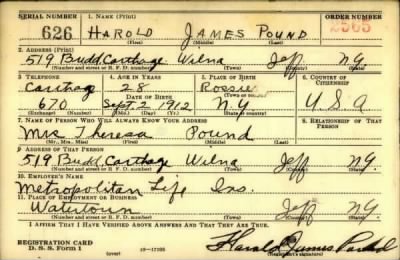 SERIAL NUMBER 1. NAME (Print) ORDER NUMBER
626 HAROLD JAMES POUND 2565
(First) (Middle) (Last)
2. ADDRESS (Print)
519 Budd, Carthage Wilna Jeff N.Y.
(Number and street or R. F. D. number) (Town) (County) (State)
3. TELEPHONE 4. AGE IN YEARS 5. PLACE OF BIRTH 6. COUNTRY OF CITIZENSHIP
Carthage 28 Rossie
(Town or county)
670 Sept. 2 1912 N.Y. U S A
(Exchange) (Number) (Mo.) (Day) (Yr.) (State or country)
7. NAME OF PERSON WHO WILL ALWAYS KNOW YOUR ADDRESS 8. RELATIONSHIP OF THAT PERSON
Mrs Theresa Pound
(Mr., Mrs., Miss) (First) (Middle) (Last)
9. ADDRESS OF THAT PERSON
519 Budd, Carthage Wilna Jeff N.Y.
(Number and street or R. F. D. number) (Town) (County) (State)
10. EMPLOYER'S NAME
Metropolitan Life Ins.
11. PLACE OF EMPLOYMENT OR BUSINESS
Watertown Jeff N.Y.
(Number and street or R. F. D. number) (Town) (County) (State)
I AFFIRM THAT I HAVE VERIFIED ABOVE ANSWERS AND THAT THEY ARE TRUE.
REGISTRATION CARD
D. S. S. Form 1 (over) Harold James Pound
(Registrant's signature)